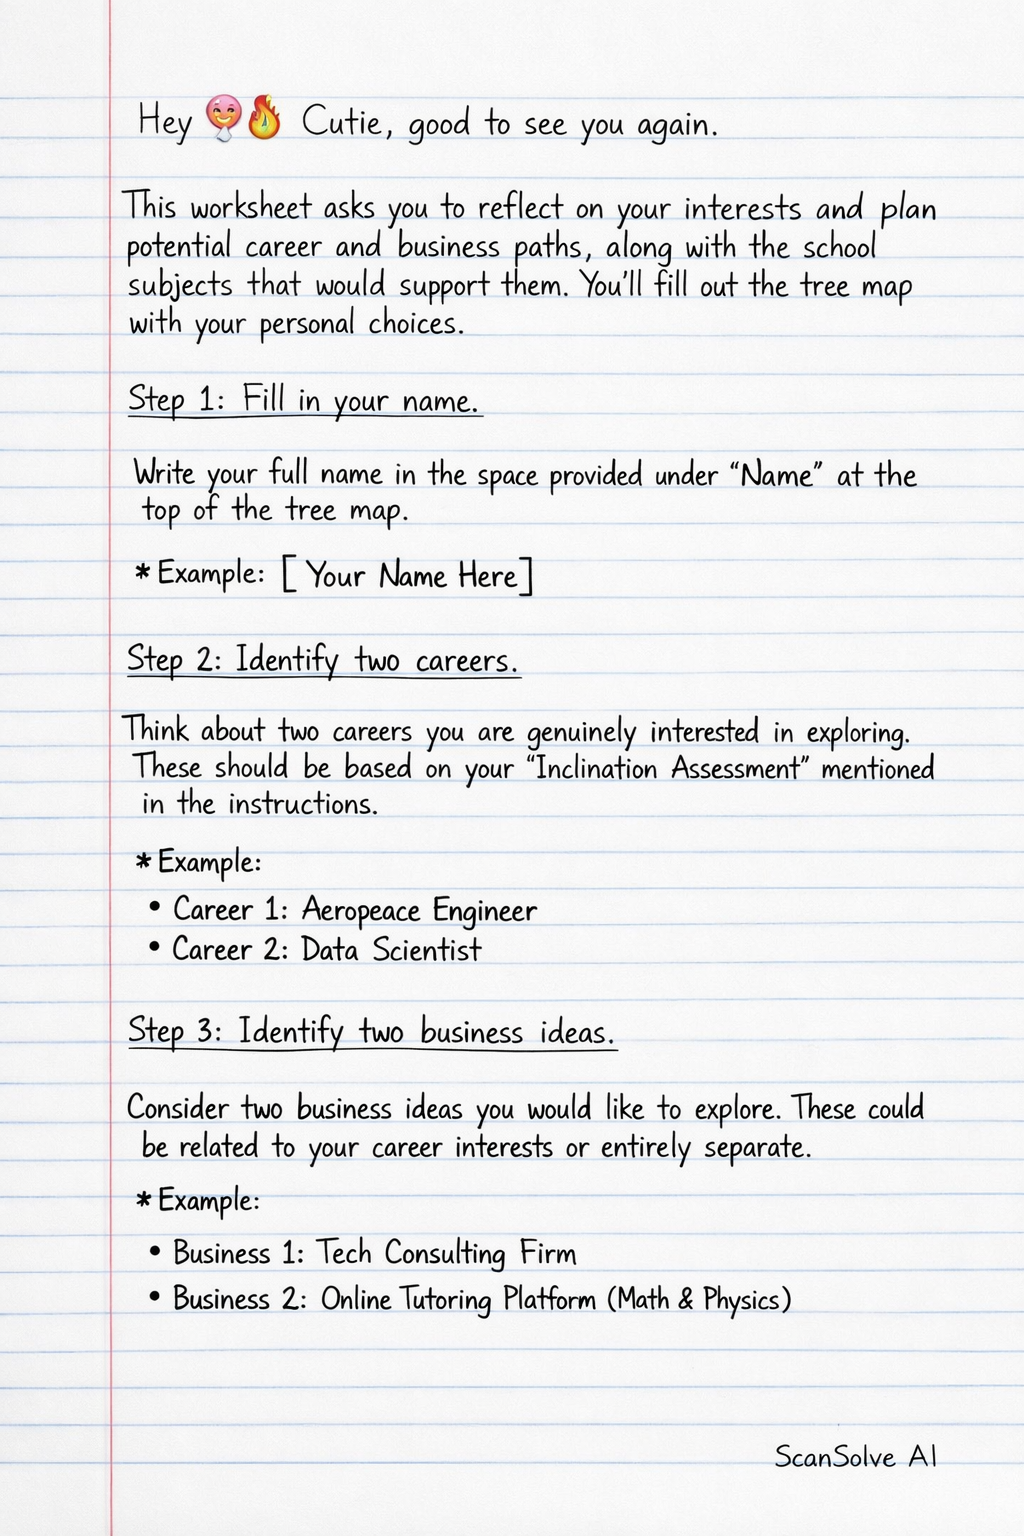 Hey 🎈🔥 Cutie, good to see you again.
This worksheet asks you to reflect on your interests and plan
potential career and business paths, along with the school
subjects that would support them. You'll fill out the tree map
with your personal choices.
Step 1: Fill in your name.
Write your full name in the space provided under “Name” at the
top of the tree map.
* Example: [ Your Name Here]
Step 2: Identify two careers.
Think about two careers you are genuinely interested in exploring.
These should be based on your “Inclination Assessment” mentioned
in the instructions.
* Example:
• Career 1: Aeropeace Engineer
• Career 2: Data Scientist
Step 3: Identify two business ideas.
Consider two business ideas you would like to explore. These could
be related to your career interests or entirely separate.
* Example:
• Business 1: Tech Consulting Firm
• Business 2: Online Tutoring Platform (Math & Physics)
ScanSolve AI